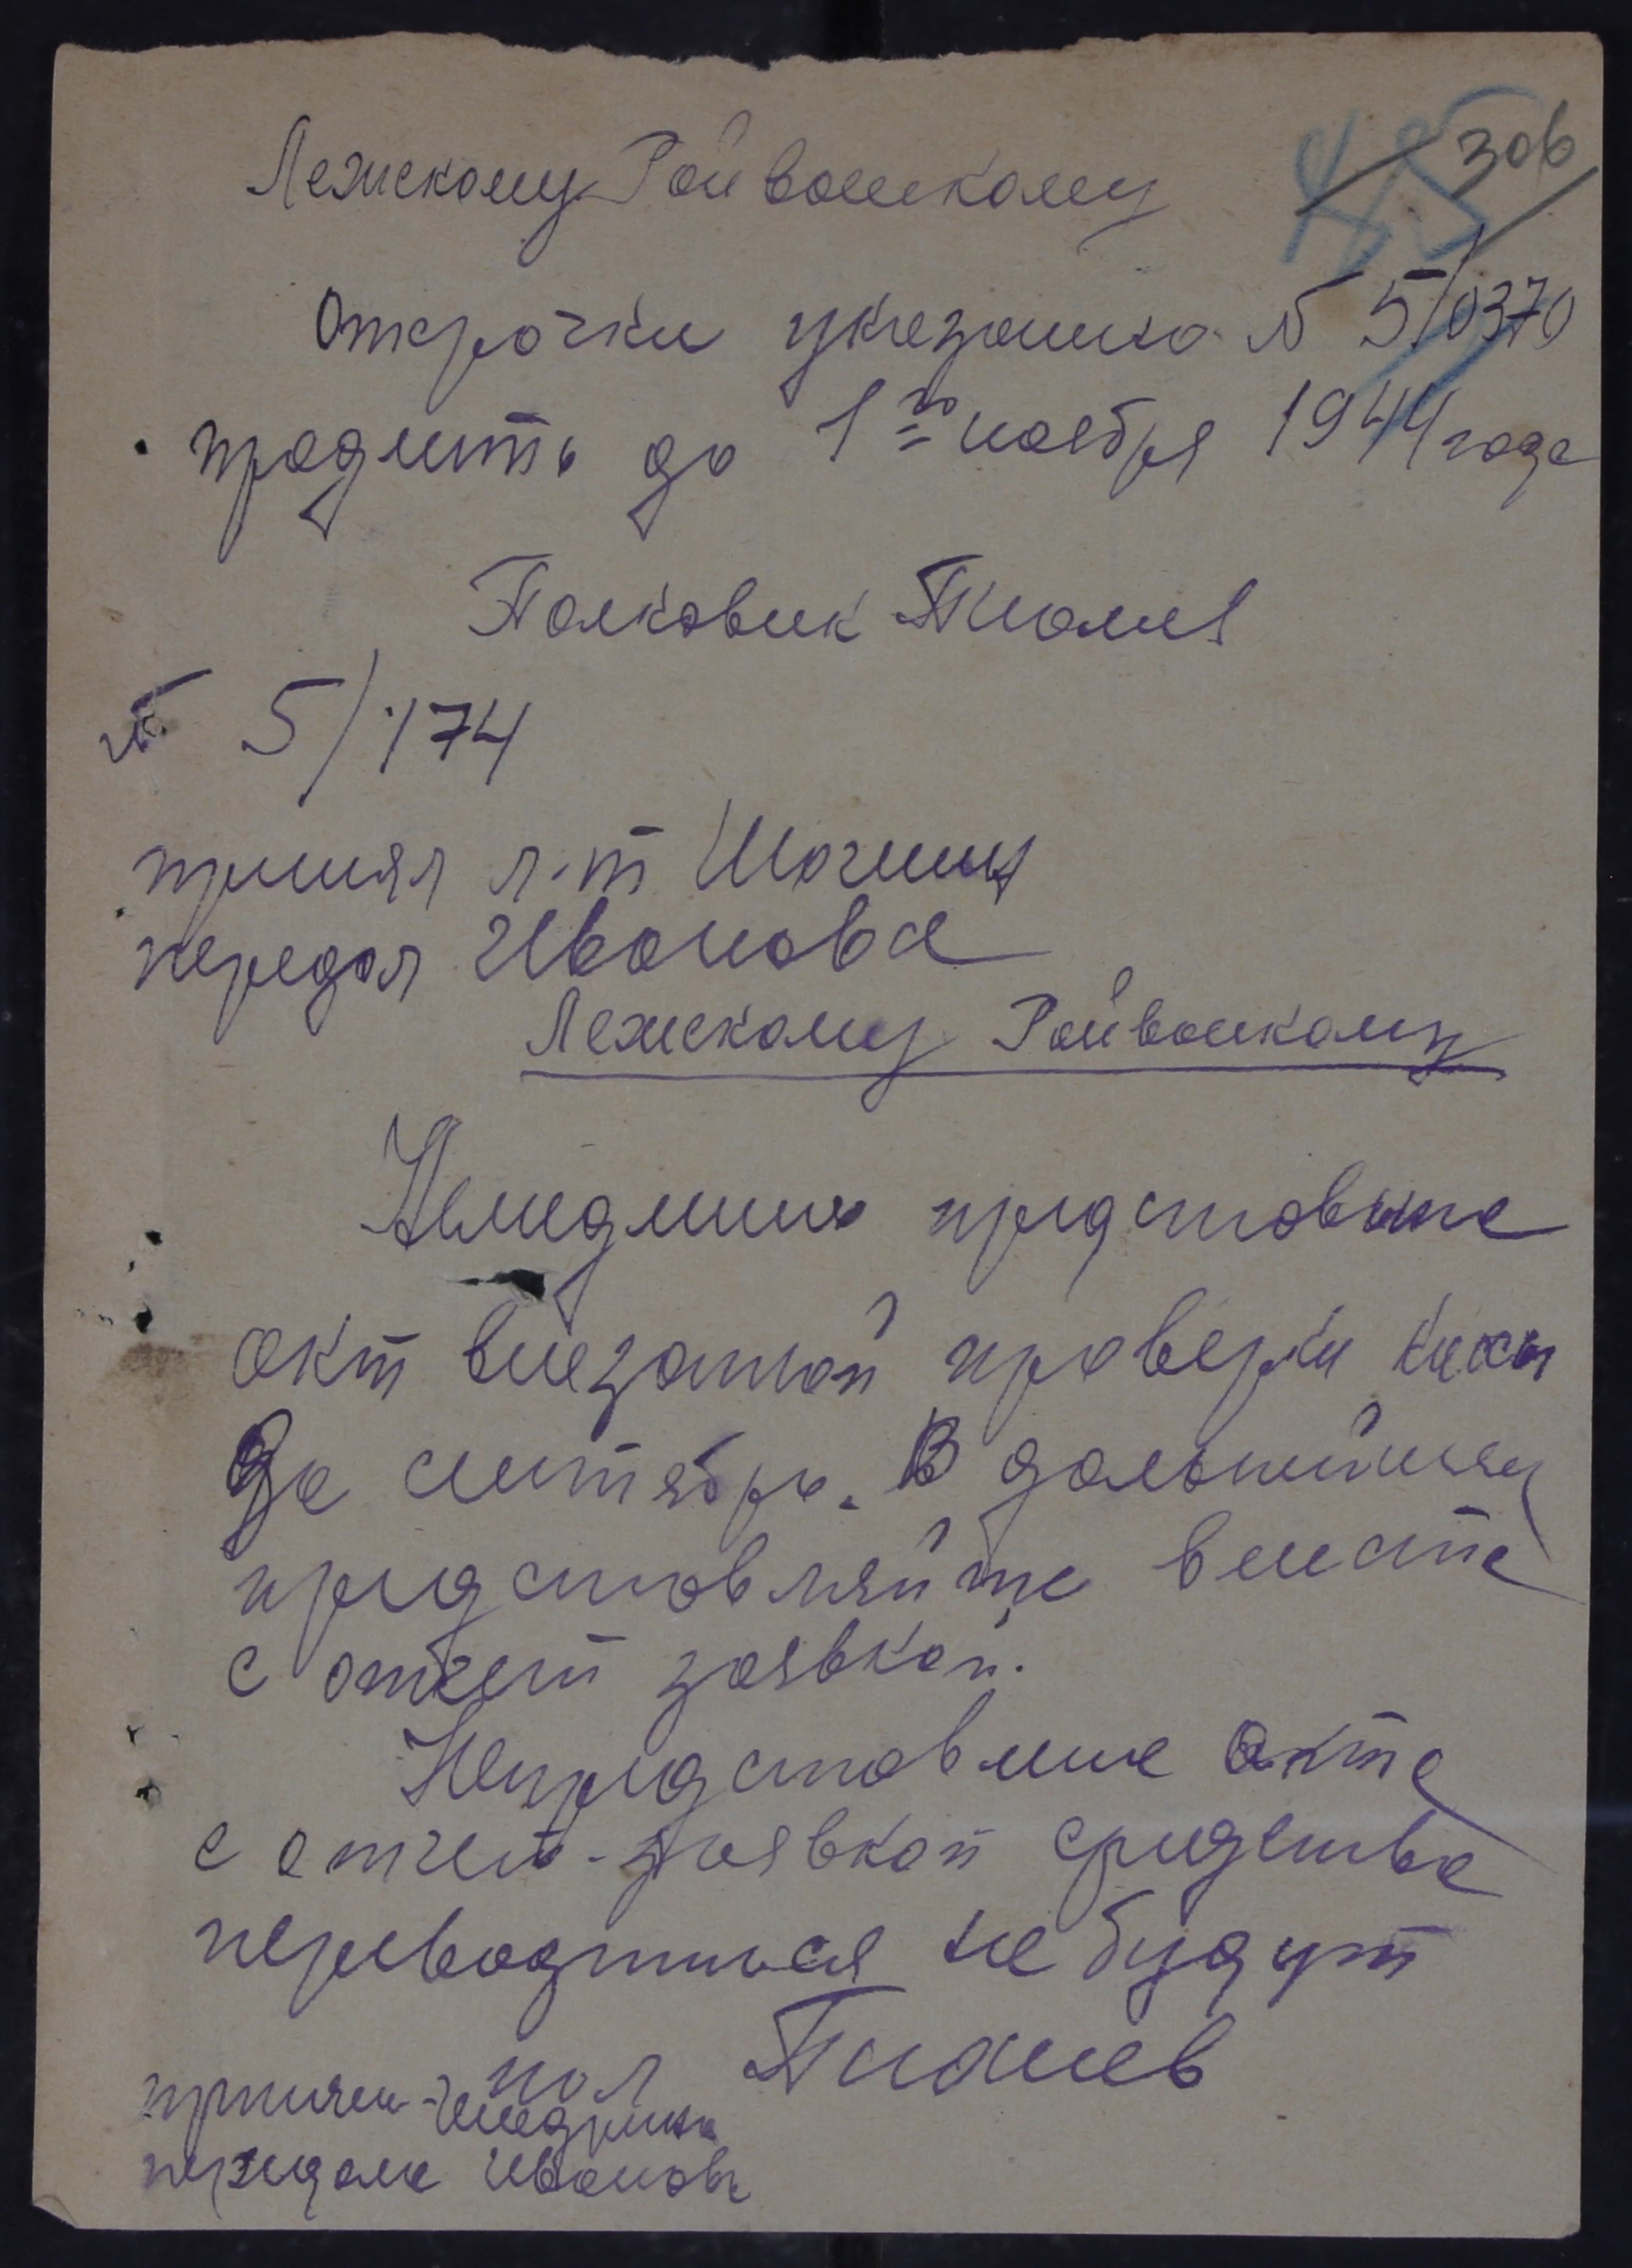 306
45
Лежскому Райвоенкому
Отсрочки указанно № 5/0370
продлить до 1го ноября 1944 года
Полковик
№ 5/174
принял л-т
передал Иванова
Лежскому Райвоенкому
Немедленно представьте
акт внезапной проверки кассы
За сентябрь. В дальнейшем
представляйте вместе
с отчет заявкой.
Непредставлние акта
с отчет-заявкой средства
переводиться не будут
пол
приняла Щедрина
передала Иванова